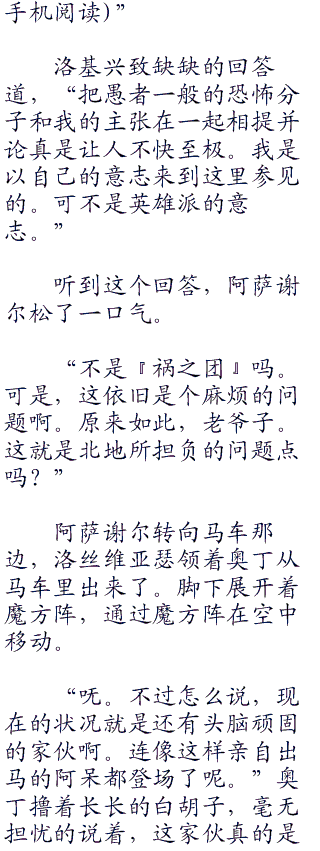 手机阅读）”
洛基兴致缺缺的回答
道，“把愚者一般的恐怖分
子和我的主张在一起相提并
论真是让人不快至极。我是
以自己的意志来到这里参见
的。可不是英雄派的意
志。”
听到这个回答，阿萨谢
尔松了一口气。
“不是『祸之团』吗。
可是，这依旧是个麻烦的问
题啊。原来如此，老爷子。
这就是北地所担负的问题点
吗？”
阿萨谢尔转向马车那
边，洛丝维亚瑟领着奥丁从
马车里出来了。脚下展开着
魔方阵，通过魔方阵在空中
移动。
“呒。不过怎么说，现
在的状况就是还有头脑顽固
的家伙啊。连像这样亲自出
马的阿呆都登场了呢。”奥
丁撸着长长的白胡子，毫无
担忧的说着，这家伙真的是